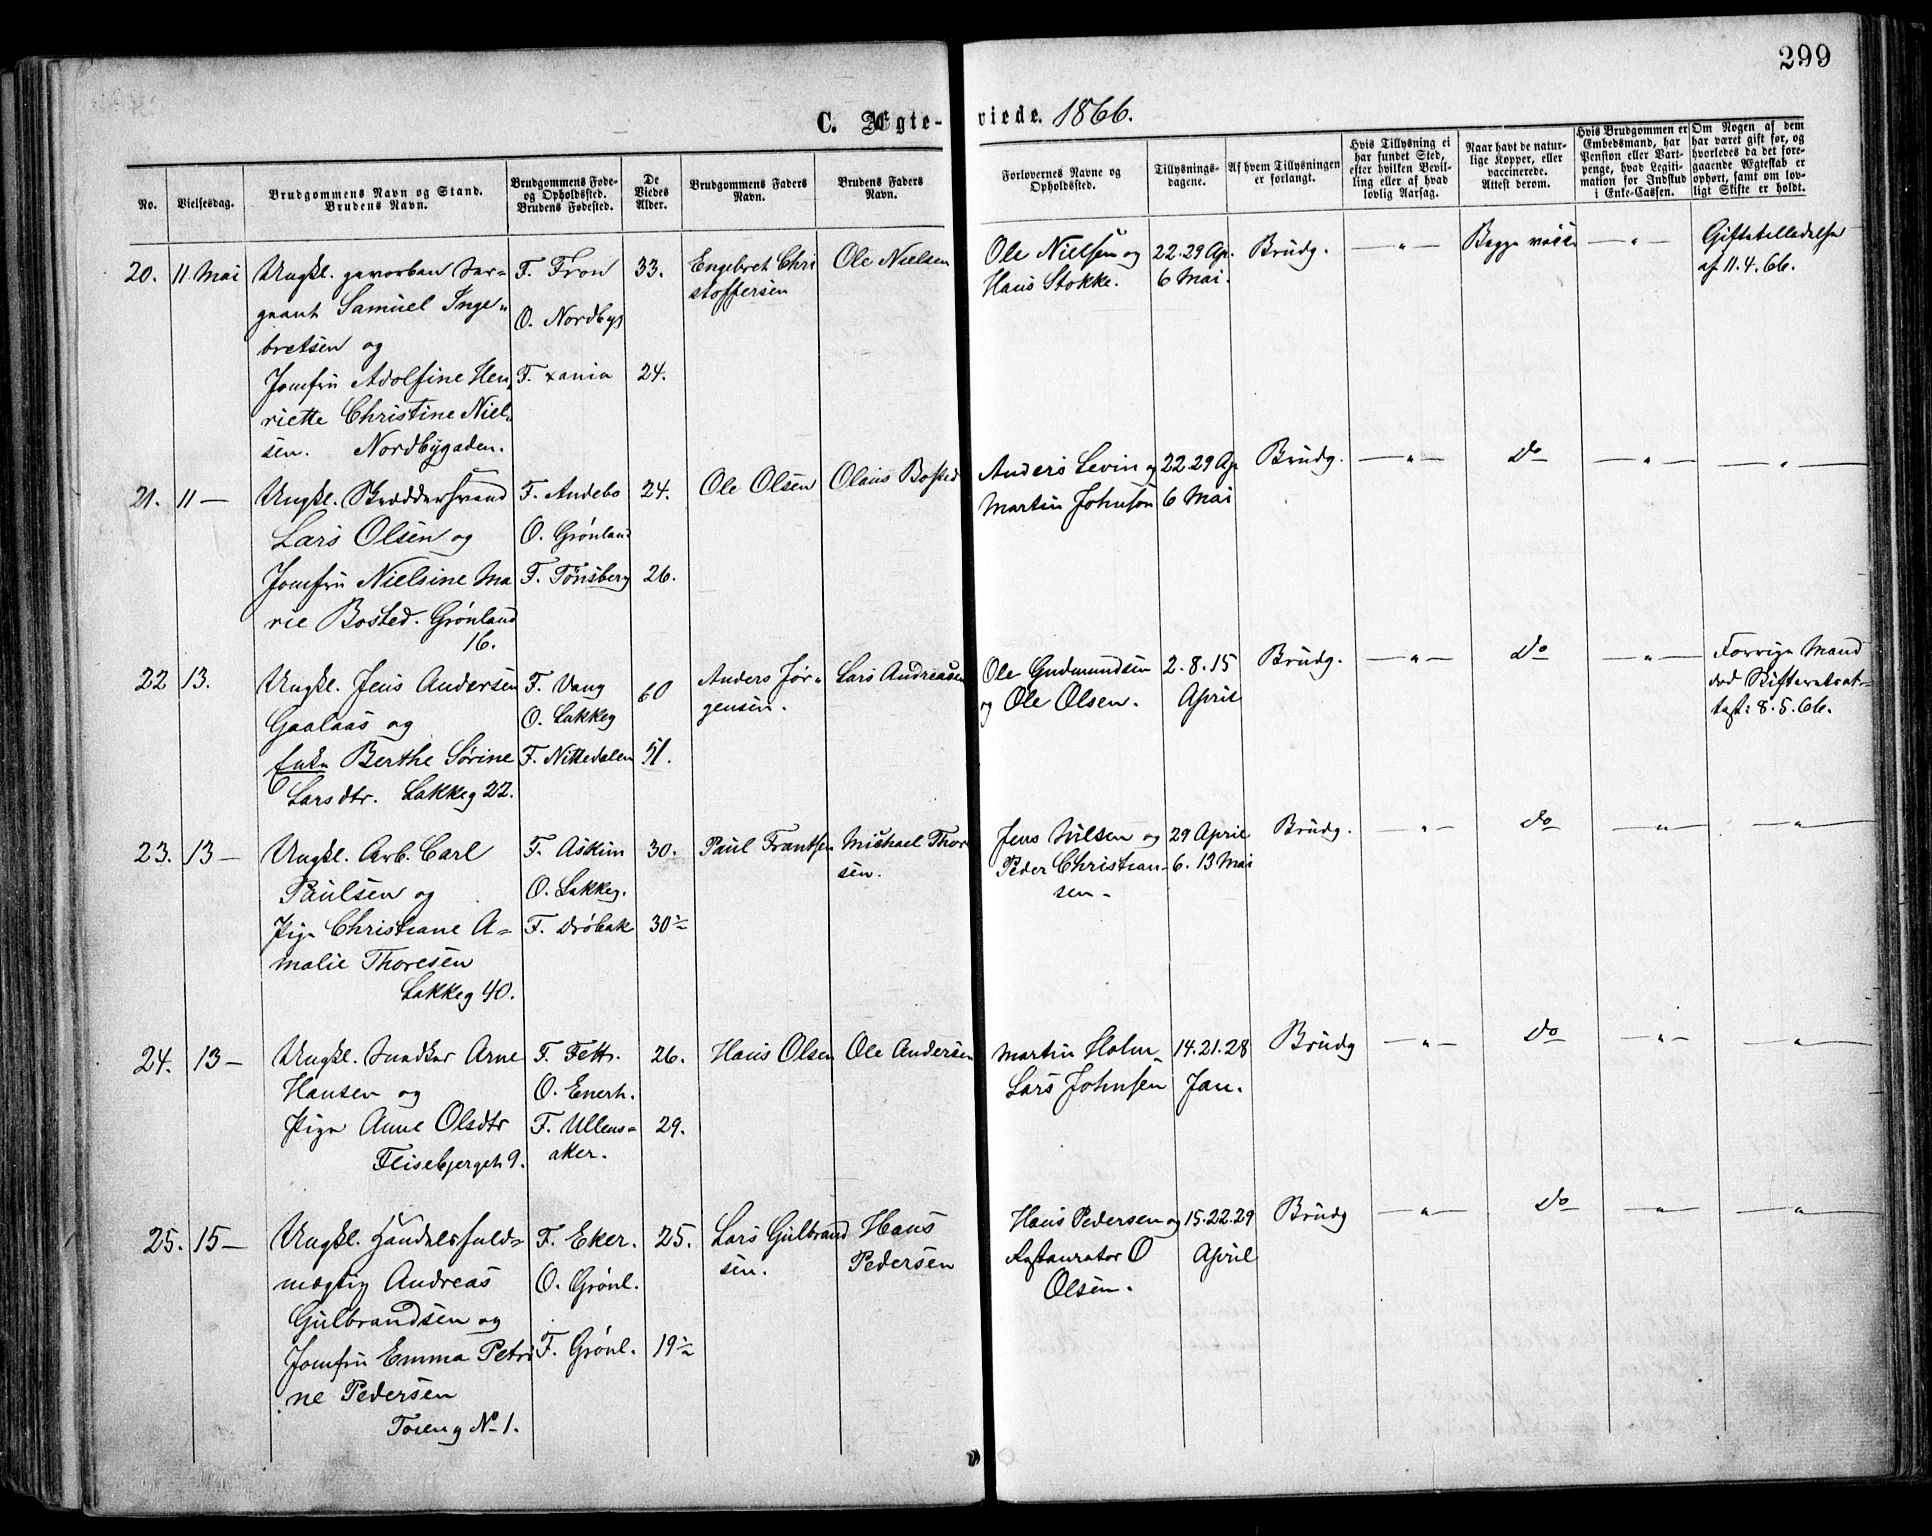 299
C. Ægteviede. 1866.
No.
Vielsesdag.
Brudgommens Navn og Stand.
Brudens Navn.
Brudgommens Føde-
og Opholdssted.
Brudens Fødested.
De
Viedes
Alder.
Brudgommens Faders
Navn.
Brudens Faders
Navn.
Forlovernes Navne og
Opholdssted.
Tillysnings-
dagene.
Af hvem Tillysningen
er forlangt.
Hvis Tillysning ei
har fundet Sted,
efter hvilken Bevil-
ling eller af hvad
lovlig Aarsag.
Naar havt de natur-
lige Kopper, eller
vaccinerede.
Attest derom.
Hvis Brudgommen er
Embedsmand, har
Pension eller Vart-
penge, hvad Legiti-
mation for Indskud
i Enke-Cassen.
Om Nogen af dem
har været gift før, og
hvorledes da det fore-
gaaende Ægteskab er
ophørt, samt om lov-
ligt Skifte er holdt.
20. 11 Mai
Ungkl. gevorben Ser-
geant Samuel Inge-
bretsen og
Jomfru Adolfine Hen-
riette Christine Niel-
sen. Nordbygaden.
F. Fron
O. Nordbyg
F. xania
33.
24.
Engebret Chri
stoffersen
Ole Nielsen
Ole Nielsen og
Hans Stokke.
22. 29 Ap.
6 Mai.
Brudg. — " — Begge vacc. — " —
Giftetilladelse
af 11. 4. 66.
21. 11 —
Ungkl. Skræddersvend
Lars Olsen og
Jomfru Nielsine Ma
rie Bosted. Grønland
16.
F. Andebo
O. Grønland
F. Tönsberg
24.
26.
Ole Olsen
Olaus Bosted
Anders Levin og
Martin Johnson
22. 29 Ap
6 Mai
Brudg. — " — do — " — — " —
22 13.
Ungkl. Jens Andersen
Gaalaas og
Enke Berthe Sørine
Larsdtr. Lakkeg 22.
F. Vang
O. Lakkeg
F. Nittedalen
60
51.
Anders Jør-
gensen.
Lars Andreasen
Ole Gudmundsen
og Ole Olsen.
2. 8. 15
April
Brudg. — " — do — " —
Forrige Mand
død Skifteretsat-
test: 8. 5. 66.
23. 13 —
Ungkl. Arb. Carl
Paulsen og
Pige Christiane A-
malie Thoresen
Lakkeg 40.
F. Askim
O. Lakkeg.
F. Drøbak
30.
30½
Paul Frantsen
Michael Thor
sen.
Jens Nilsen og
Peder Christian-
sen-
29 April
6. 13 Mai
Brudg. — " — do — " — — " —
24. 13 —
Ungkl. Arne
Hansen og
Pige Anne Olsdtr
Flisebjerget 9.
F. Fett.
O. Enerh.
F. Ullens-
aker.
26.
29.
Hans Olsen
Ole Andersen
Martin Holm-
Lars Johnsen
14. 21. 28
Jan.
Brudg — " — do — " — — " —
25. 15 —
Ungkl. Handelsfuld-
mægtig Andreas
Gulbrandsen og
Jomfru Emma Petri
ne Pedersen
Toieng No 1.
F. Eker.
O. Grønl.
F. Grønl.
25.
19½
Lars Gulbrand
sen.
Hans
Pedersen
Hans Pedersen og
Restaurator O
Olsen.
15. 22. 29
April
Brudg — " — do — " — — " —